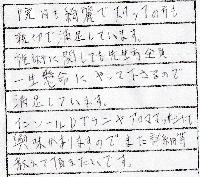 院内も綺麗でスタッフの方も
親切で満足しています。
施術に関しても先生方全員
一生懸命にやって下さるので
満足しています。
インソールやサンヤアロママッサージに
興味がありますのでまた詳細等
教えて頂きたいです。